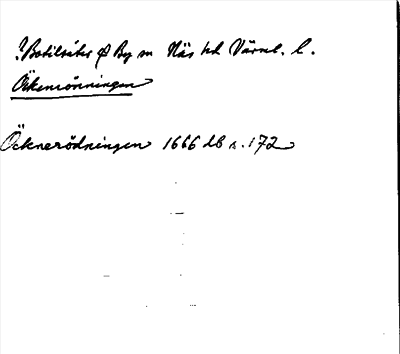 ?Botilsäter ⌀ By sn Näs hd Värml. l.
Ökenrönningen
Öcknerödningen 1666 db s. 172